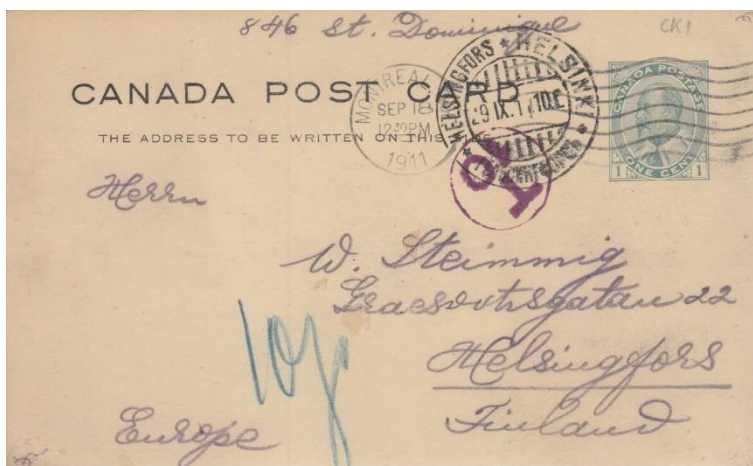 846 St. Dominique
CK1
CANADA POST CARD
THE ADDRESS TO BE WRITTEN ON THIS
MONTREAL
SEP 18
12 30 PM
1911
HELSINGFORS ★ HELSINKI ★
29.IX.11 10.E
T
CANADA POSTAGE
1 ONE CENT 1
Herrn
W. Steimmig
22
Helsingfors
Finland
Europe